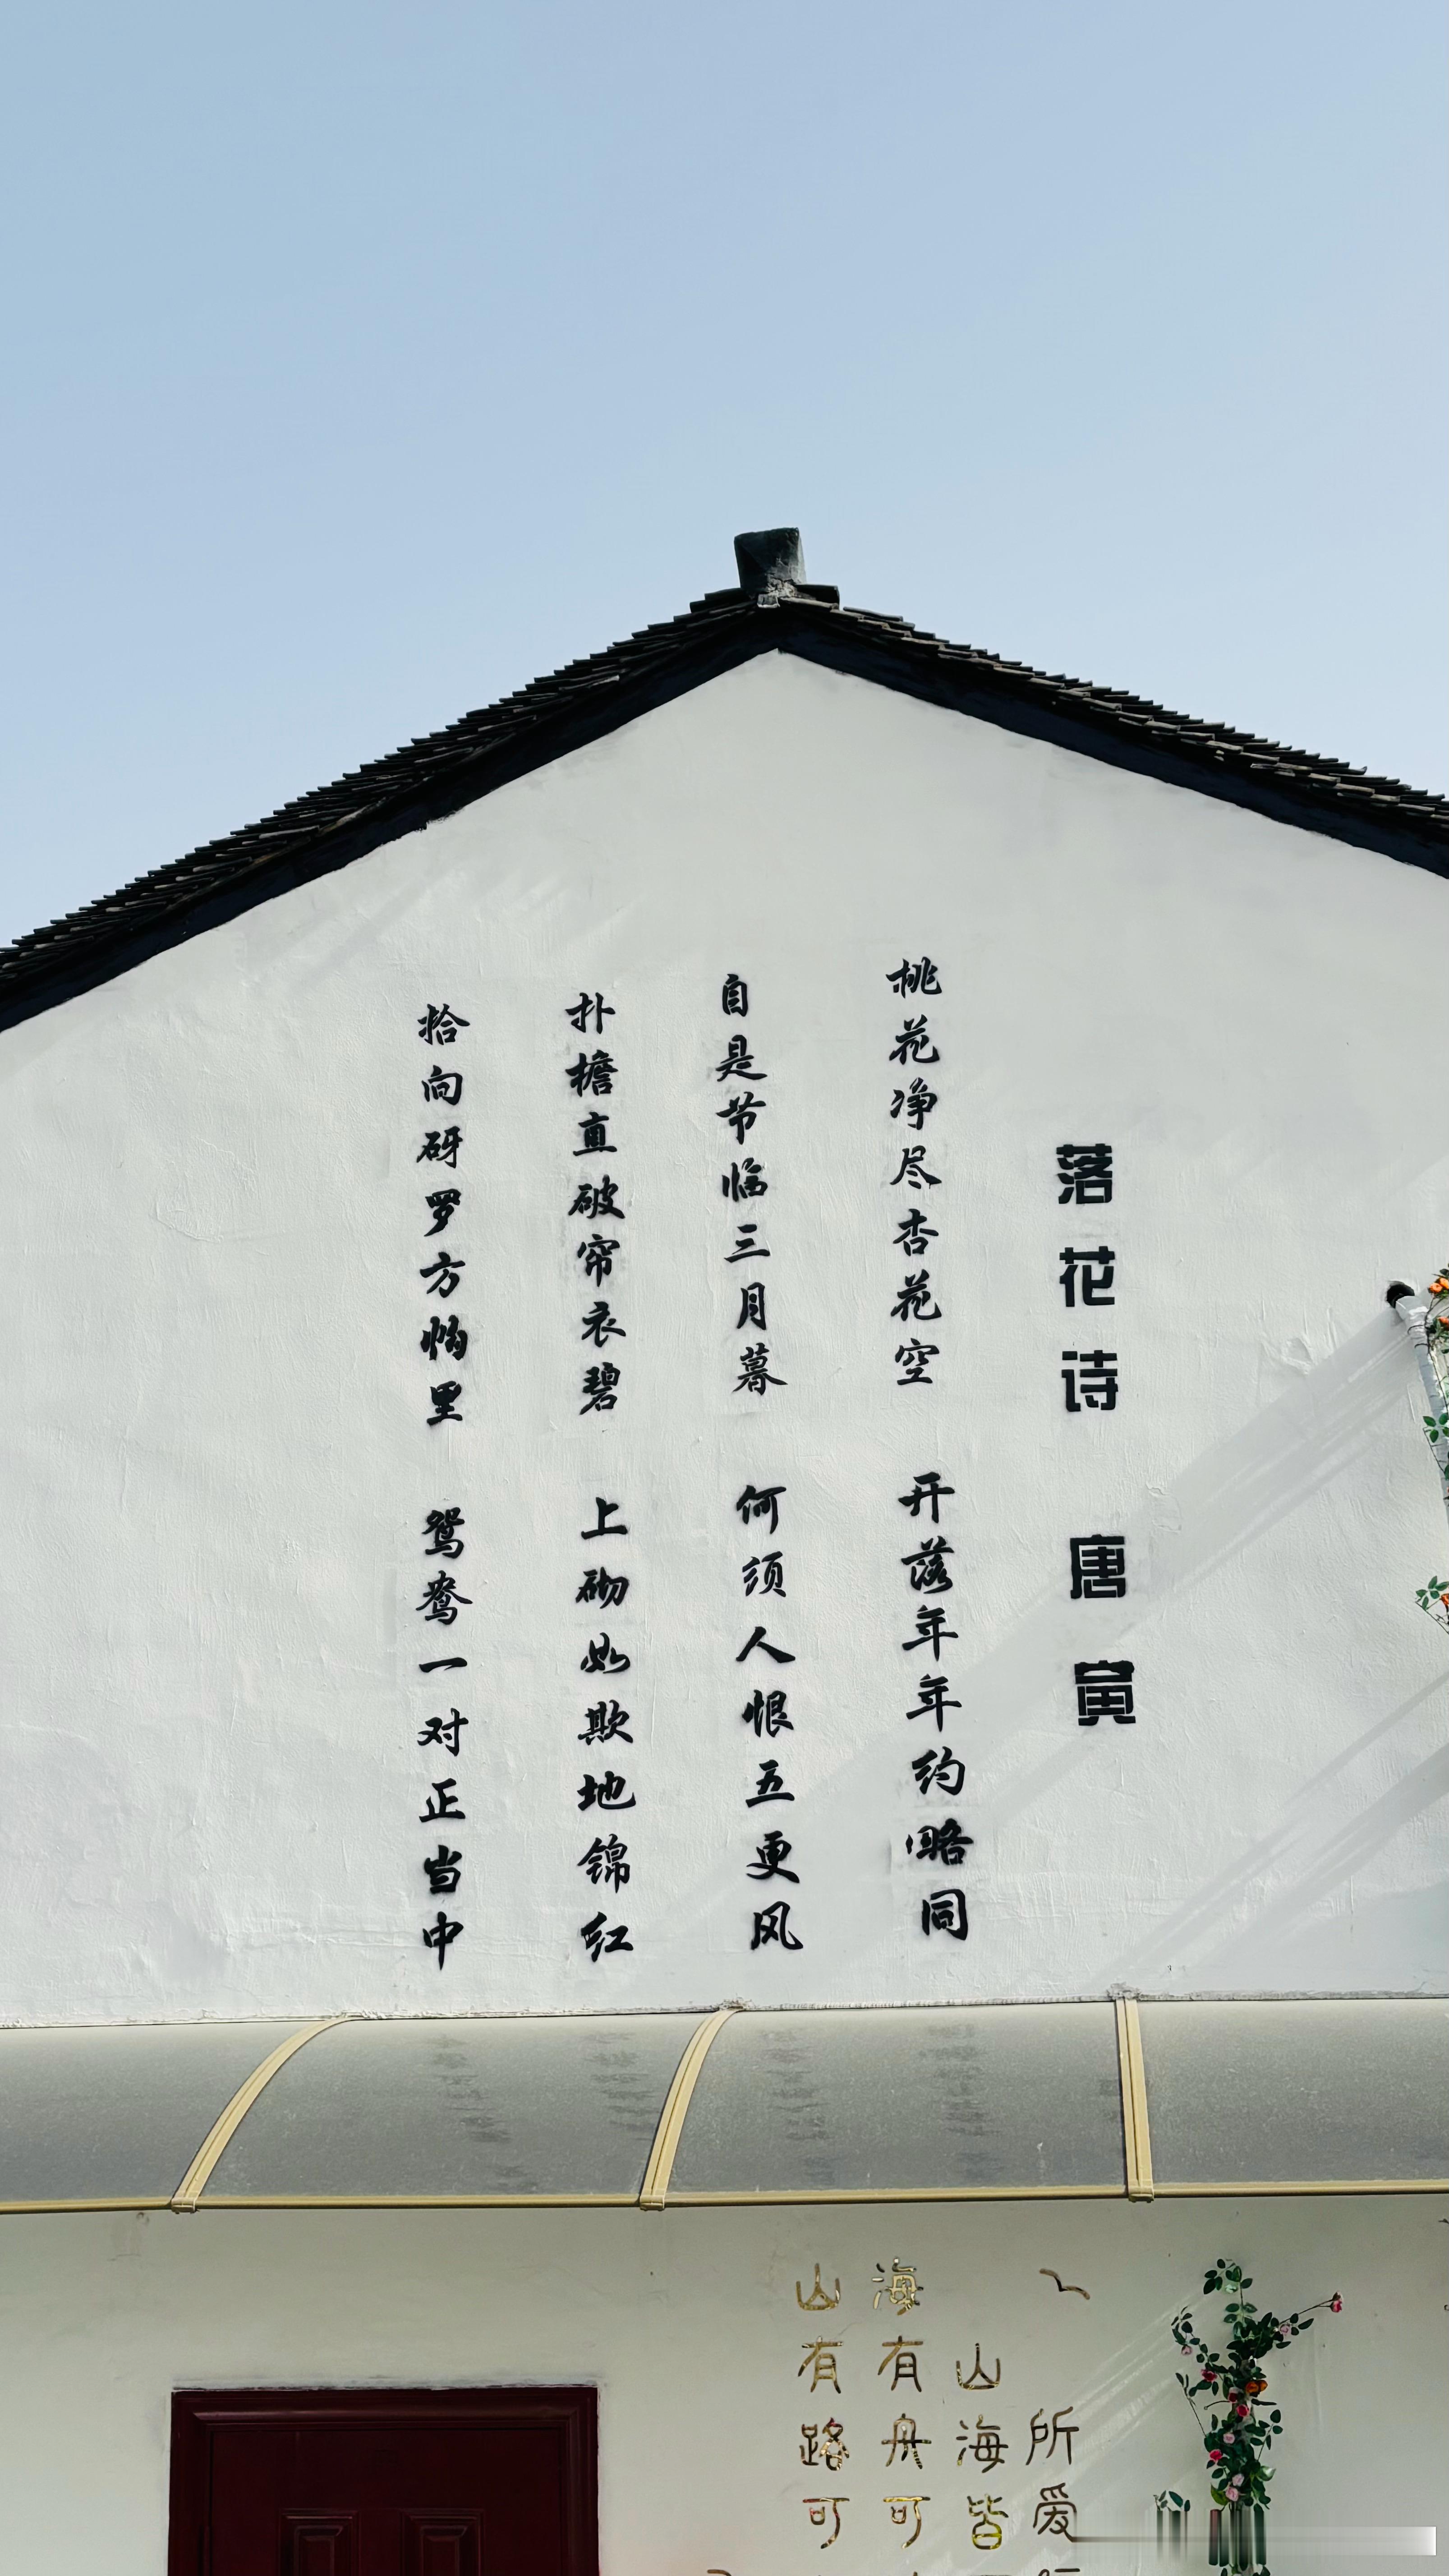 落花诗 唐寅
桃花净尽杏花空 开落年年约略同
自是节临三月暮 何须人恨五更风
扑檐直破帘衣碧 上砌如欺地锦红
拾向砑罗方帕里 鸳鸯一对正当中
所爱
山海皆
海有舟可
山有路可